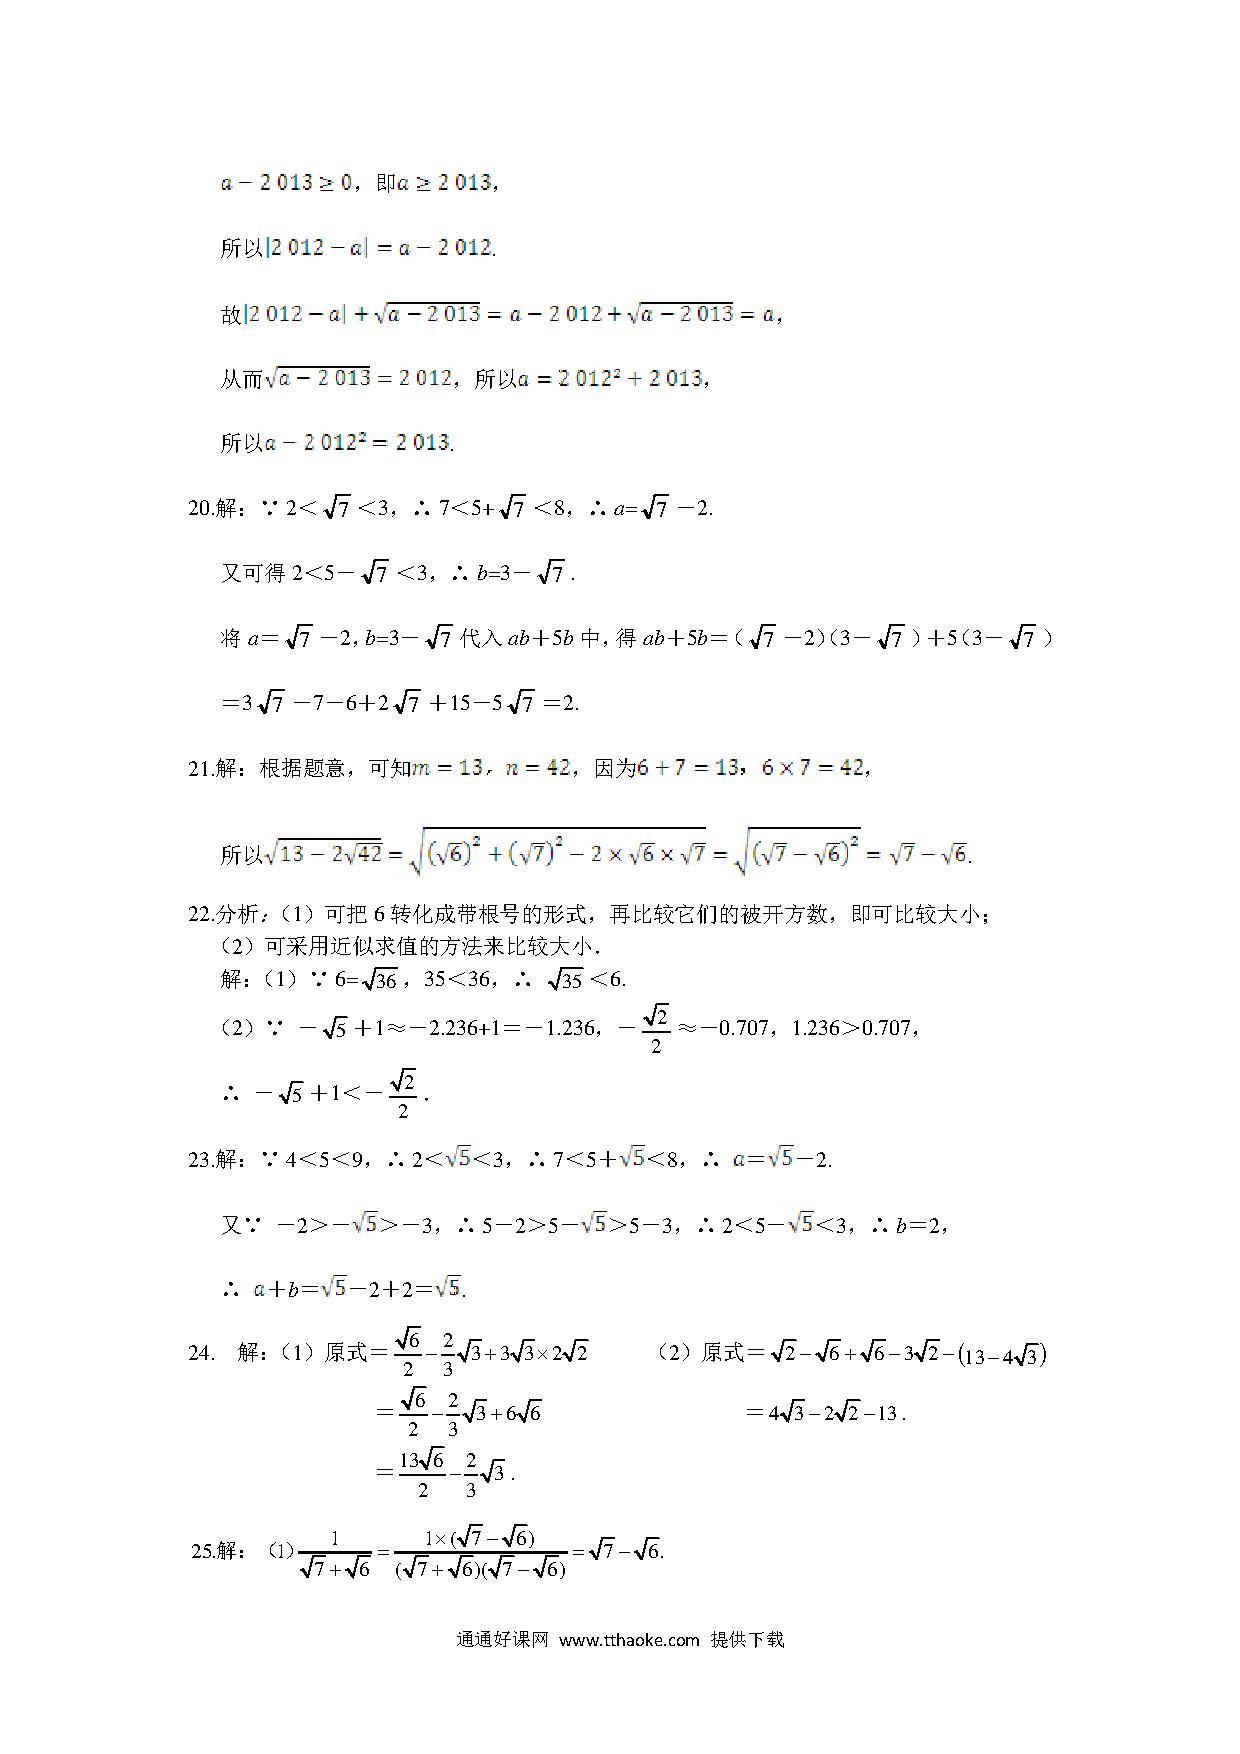 a－2 013≥0，即a≥2 013，
所以|2 012－a|＝a－2 012.
故|2 012－a|＋√(a－2 013)＝a－2 012＋√(a－2 013)＝a，
从而√(a－2 013)＝2 012，所以a＝2 012²＋2 013，
所以a－2 012²＝2 013.
20.解：∵ 2＜√7＜3，∴ 7＜5+√7＜8，∴ a=√7－2.
又可得 2＜5－√7＜3，∴ b=3－√7.
将 a＝√7－2，b=3－√7代入 ab＋5b 中，得 ab＋5b＝（√7－2）（3－√7）＋5（3－√7）
＝3√7－7－6＋2√7＋15－5√7＝2.
21.解：根据题意，可知m＝13，n＝42，因为6＋7＝13，6×7＝42，
所以√(13－2√42)＝√((√6)²＋(√7)²－2×√6×√7)＝√((√7－√6)²)＝√7－√6.
22.分析：（1）可把 6 转化成带根号的形式，再比较它们的被开方数，即可比较大小；
（2）可采用近似求值的方法来比较大小．
解：（1）∵ 6=√36，35＜36，∴ √35＜6.
（2）∵ －√5＋1≈－2.236+1＝－1.236，－√2/2≈－0.707，1.236＞0.707，
∴ －√5＋1＜－√2/2.
23.解：∵ 4＜5＜9，∴ 2＜√5＜3，∴ 7＜5＋√5＜8，∴ a＝√5－2.
又∵ －2＞－√5＞－3，∴ 5－2＞5－√5＞5－3，∴ 2＜5－√5＜3，∴ b＝2，
∴ a＋b＝√5－2＋2＝√5.
24. 解：（1）原式＝√6/2−2/3√3+3√3×2√2 （2）原式＝√2−√6+√6−3√2−(13−4√3)
＝√6/2−2/3√3+6√6 ＝4√3−2√2−13.
＝13√6/2−2/3√3.
25.解：（1）1/(√7+√6)=1×(√7−√6)/((√7+√6)(√7−√6))=√7−√6.
通通好课网 www.tthaoke.com 提供下载